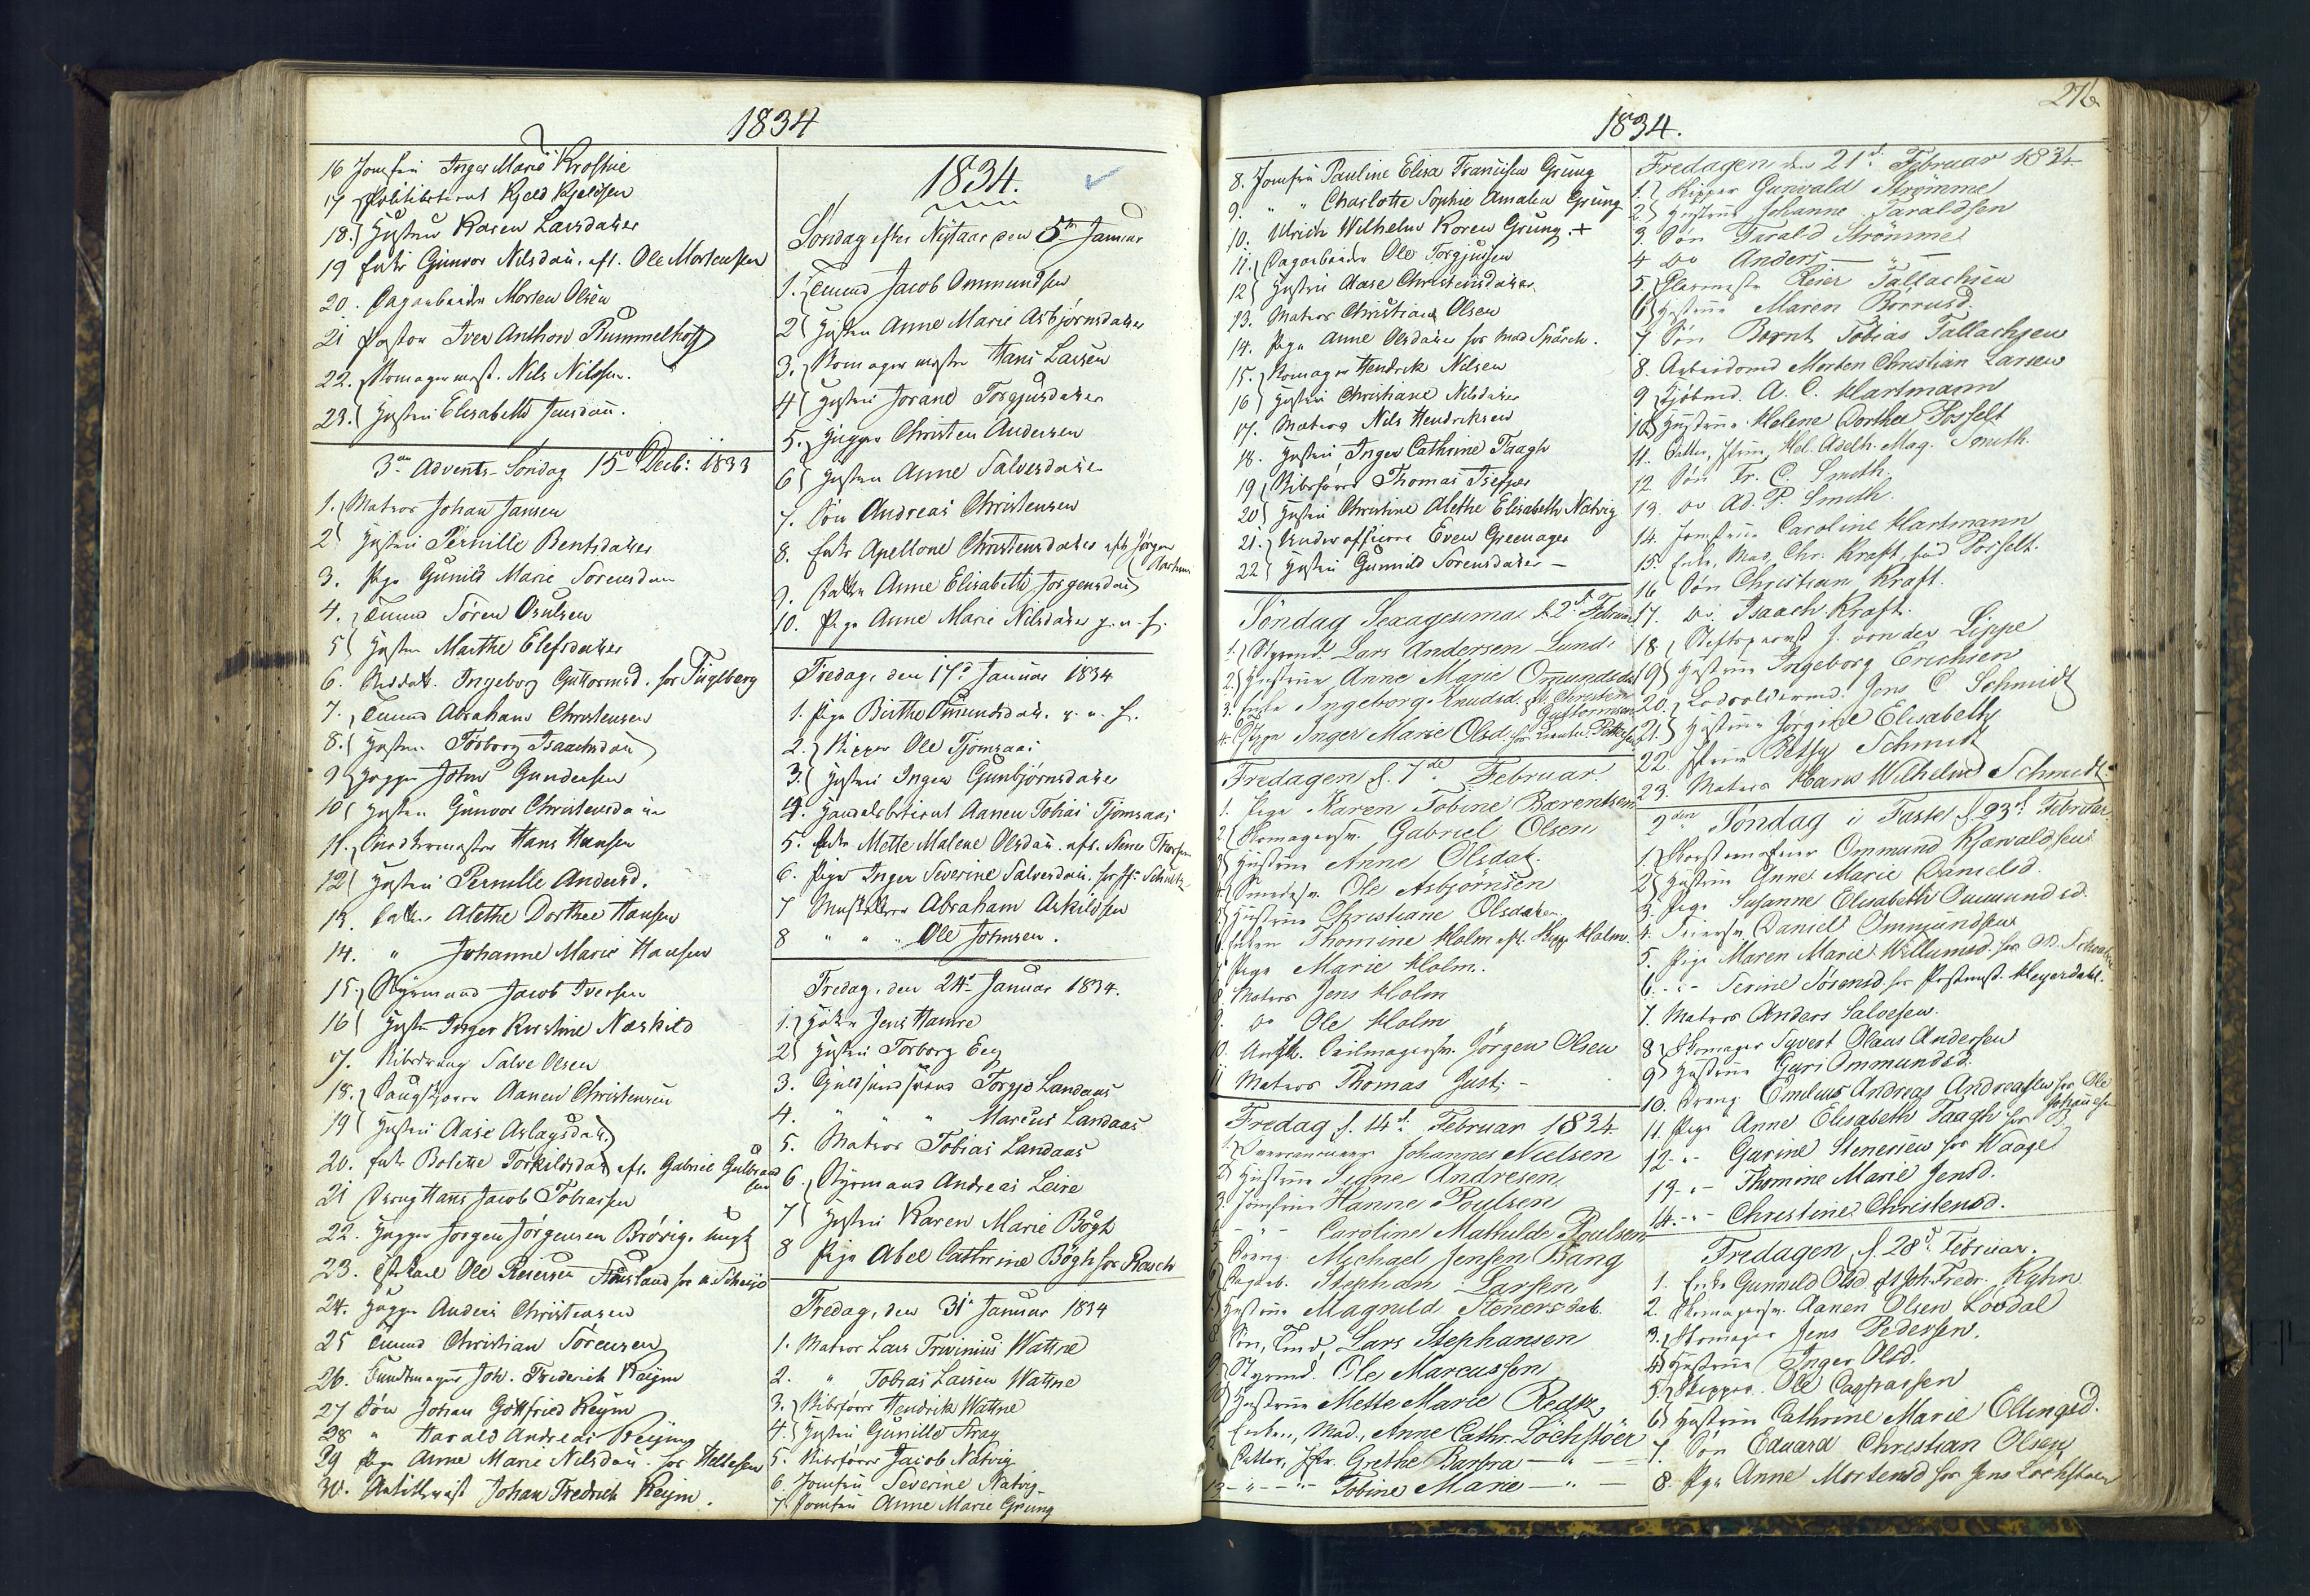 1834
16 Jomfru Inger Marie Krostrie
17 Politibetient Kjeld Kjeldsen
18. Hustru Karen Larsdatter
19 Enke Gunvor Nilsdatt. eft. Ole Mortensen
20. Dagarbeider Morten Olsen
21 Pastor Iver Anthon Rummelhoff
22. Skomagermest. Nils Nilsen.
23. Hustru Elisabeth Jensdatt.
3die Advents Søndag 15de Decb: 1833
1. Matros Johan Jansen
2 Hustru Pernille Bentsdatter
3. Pige Gunild Marie Sorensdatt
4. Tømmd Sören Osulsen
5 Hustru Marthe Elefsdatter
6. Ingeborg Guttormsd. hos Fuglberg
7. Tømmd Abraham Christensen
8. Hustru Torborg Isaachsdatt
9 Hugger John Gundersen
10 Hustru Gunvor Christensdatt
11. Snedkermester Hans Hansen
12 Hustru Pernille Andersd.
13. Datter Alethe Dorthea Hansen
14. " Johanne Marie Hansen
15. Styrmand Jacob Iversen
16 Hustru Inger Kirstine Næskild
17. Salve Olsen
18. Aanen Christensen
19 Hustru Aase Aslagsdatt.
20. Enke Bolette Torkildsdatt eft. Gabriel Gulbrandsen
21 Dreng Hans Jacob Tobiassen
22. Hugger Jørgen Jörgensen Brövig. ungk
23. Ole Reiersen Stousland hos
24. Hugger Anders Christensen
25 Tømmd Christian Sörensen
26. Joh. Friderich Reijm
27 Sön Johan Gottfried Reijm
28 " Harald Andreas Reijm
29 Pige Anne Marie Nilsdatt. hos Heltesen
30. Johan Fredrich Reijm.
1834.
Søndag efter Nÿtaar den 5te Januar
1. Tømmd Jacob Ommundsen
2 Hustru Anne Marie Asbjørnsdatter
3. Skomagermester Hans Larsen
4 Hustru Jorand Torgjusdatter
5. Hugger Christen Andersen
6 Hustru Anne Salvesdatter
7. Sön Andreas Christensen
8. Enke Apellone Christensdatter eft. Jörgen
9. Datter Anne Elisabeth Jorgensdatt
10. Pige Anne Marie Nilsdatter p. u. h.
Fredag, den 17de Januar 1834
1. Pige Birthe Omundsdatt. p. u. h.
2. Skipper Ole Tjomsaas
3. Hustru Inger Gunbjörnsdatter
4. Handelsbetient Aanen Tobias Tjomsaas
5. Enke Mette Malene Olsdatt. eft.
6. Pige Inger Severine Salvesdatt. hos Schultz
7 Abraham Askildsen
8 " " " Ole Johnsen.
Fredag, den 24de Januar 1834.
1. Jens Hamre
2 Hustru Torborg Eeg
3. Guldsmedsvend Torgjs Landaas
4. " " " Marcus Landaas
5. Matros Tobias Landaas
6. Styrmand Andreas Leire
7 Hustru Karen Marie Bögh
8 Pige Abel Cathrine Bögh hos Rasch
Fredag, den 31te Januar 1834
1. Matros Lars Trivinius Wattne
2. " Tobias Larsen Wattne
3. Hendrik Wattne
4. Hustru Gunille Aray
5. Jacob Natvig
6. Jomfru Severine Natvig
7. Jomfru Anne Marie Grung
276
1834.
8. Jomfru Pauline Elisa Francisca Grung
9. " " Charlotte Sophie Amalia Grung
10. Ulrich Wilhelm Koren Grung. +
11. Dagarbeider Ole Torgjusen
12 Hustru Aase Christensdatter
13. Matros Christian Olsen
14. Pige Anne Olsdatter hos Mad Spärch.
15. Skomager Hendrik Nilsen
16 Hustru Christiane Nilsdatter
17. Matros Nils Hendriksen
18. Hustru Inger Cathrine Faagh
19 Thomas Jseppes
20 Hustru Christine Alethe Elisabeth Natvig
21. Underofficeer Even Greenager
22 Hustru Gunnild Sorensdatter -
Søndag Sexagesima d. 2d Februar
1. Styrmd. Lars Andersen Lund
2. Hustrue Anne Marie Omundsdat
3. Enke Ingeborg Knudsd. eft. Christen Guttormsen
4. Pige Inger Marie Olsd: hos
Fredagen d. 7de Februar.
1. Pige Karen Tobine Bærentsen
2 Skomagersv. Gabriel Olsen
3 Hustrue Anne Olsdat.
4. Smedesv. Ole Asbjörnsen
5 Hustrue Christiane Olsdatter
6 Enken Thomine Holm eft. Skipp Holm.
7 Pige Marie Holm.
8. Matros Jens Holm
9. do Ole Holm
10. Seilmagersv. Jörgen Olsen
11 Matros Thomas Just: -
Fredag d. 14d: Februar 1834
1. Johannes Nielsen
2 Hustrue Signe Andresen,
3. Jomfrue Hanne Poulsen
4. - " - Caroline Mathilde Poulsen
5 Dreng Michael Jensen Bang
6 Dagarb. Stephan Larsen
7 Hustrue Magnild Stenersdat.
8 Sön, Tmd, Lars Stephansen
9. Styrmd. Ole Marcussen
10 Hustrue Mette Marie Redtz
11 Enken, Mad, Anne Cathr. Löchstöer
12 Datter, Jfr. Grethe Barbra - " -
13 - " - - " - Tobine Marie - " -
Fredagen den 21d: Februar 1834
1. Skipper Gunvald Strömme
2 Hustrue Johanne Taraldsen
3. Sön Tarald Strömme
4 do Anders - " -
5. Glarmester Reier Tallachsen
6 Hustrue Maren Borrusd.
7 Sön Bernt Tobias Tallachsen
8. Arbeidsmd Morten Christian Larsen
9 Kjöbmd. A. C. Hartmann
10 Hustrue Helene Dorthea Posselt
11. Datter, Hel. Adelh. Mag. Smith.
12 Sön Fr. C. Smith.
13. do Ad. P. Smith.
14. Jomfrue Caroline Hartmann
15. Enke, Mad, Chr. Kraft, fød Posselt.
16 Sön Christian Kraft.
17. do. Isaach Kraft.
18, Stiftsprovst J. von der Lippe
19 Hustrue Ingeborg Erichsen
20. Lodsoldermd. Jens C Schmidt
21. Hustrue Jörgine Elisabeth
22. Betsy Schmidt
23. Matros Hans Wilhelm Schmidt.
2den Søndag i Faste d. 23d Februar
1. Ommund Kjævaldsen
2 Hustrue Anne Marie Danielsd.
3. Pige Susanne Elisabeth Ommundsd.
4. Daniel Ommundsen
5. Pige Maren Marie Willumsd. hos
6. - " - Serine Sörensd. hos Postmest. Heyerdahl.
7. Matros Anders Salvesen.
8 Skomager Syvert Olaus Andersen
9 Hustrue Guri Ommundsd.
10. Dreng Emilius Andreas Andreassen hos Ole
11. Pige Anne Elisabeth Faagh hos
12 - " - Gurine Stenersen hos Waage
13 - " - Thomine Marie Jensd.
14. - " - Christine Christensd.
Fredagen, d. 28d: Februar.
1. Enke Gunnild Olsd eft Joh. Fredr. Ryhn
2. Skomagersv. Aanen Olsen Lovdal
3. Skomager Jens Pedersen.
4 Hustrue Inger Olsd.
5. Skipper. Ole Caspersen
6 Hustrue Cathrine Marie Ellingsd.
7. Sön Eduard Christian Olsen
8. Pige Anne Mortensd hos Jens Lochstøer